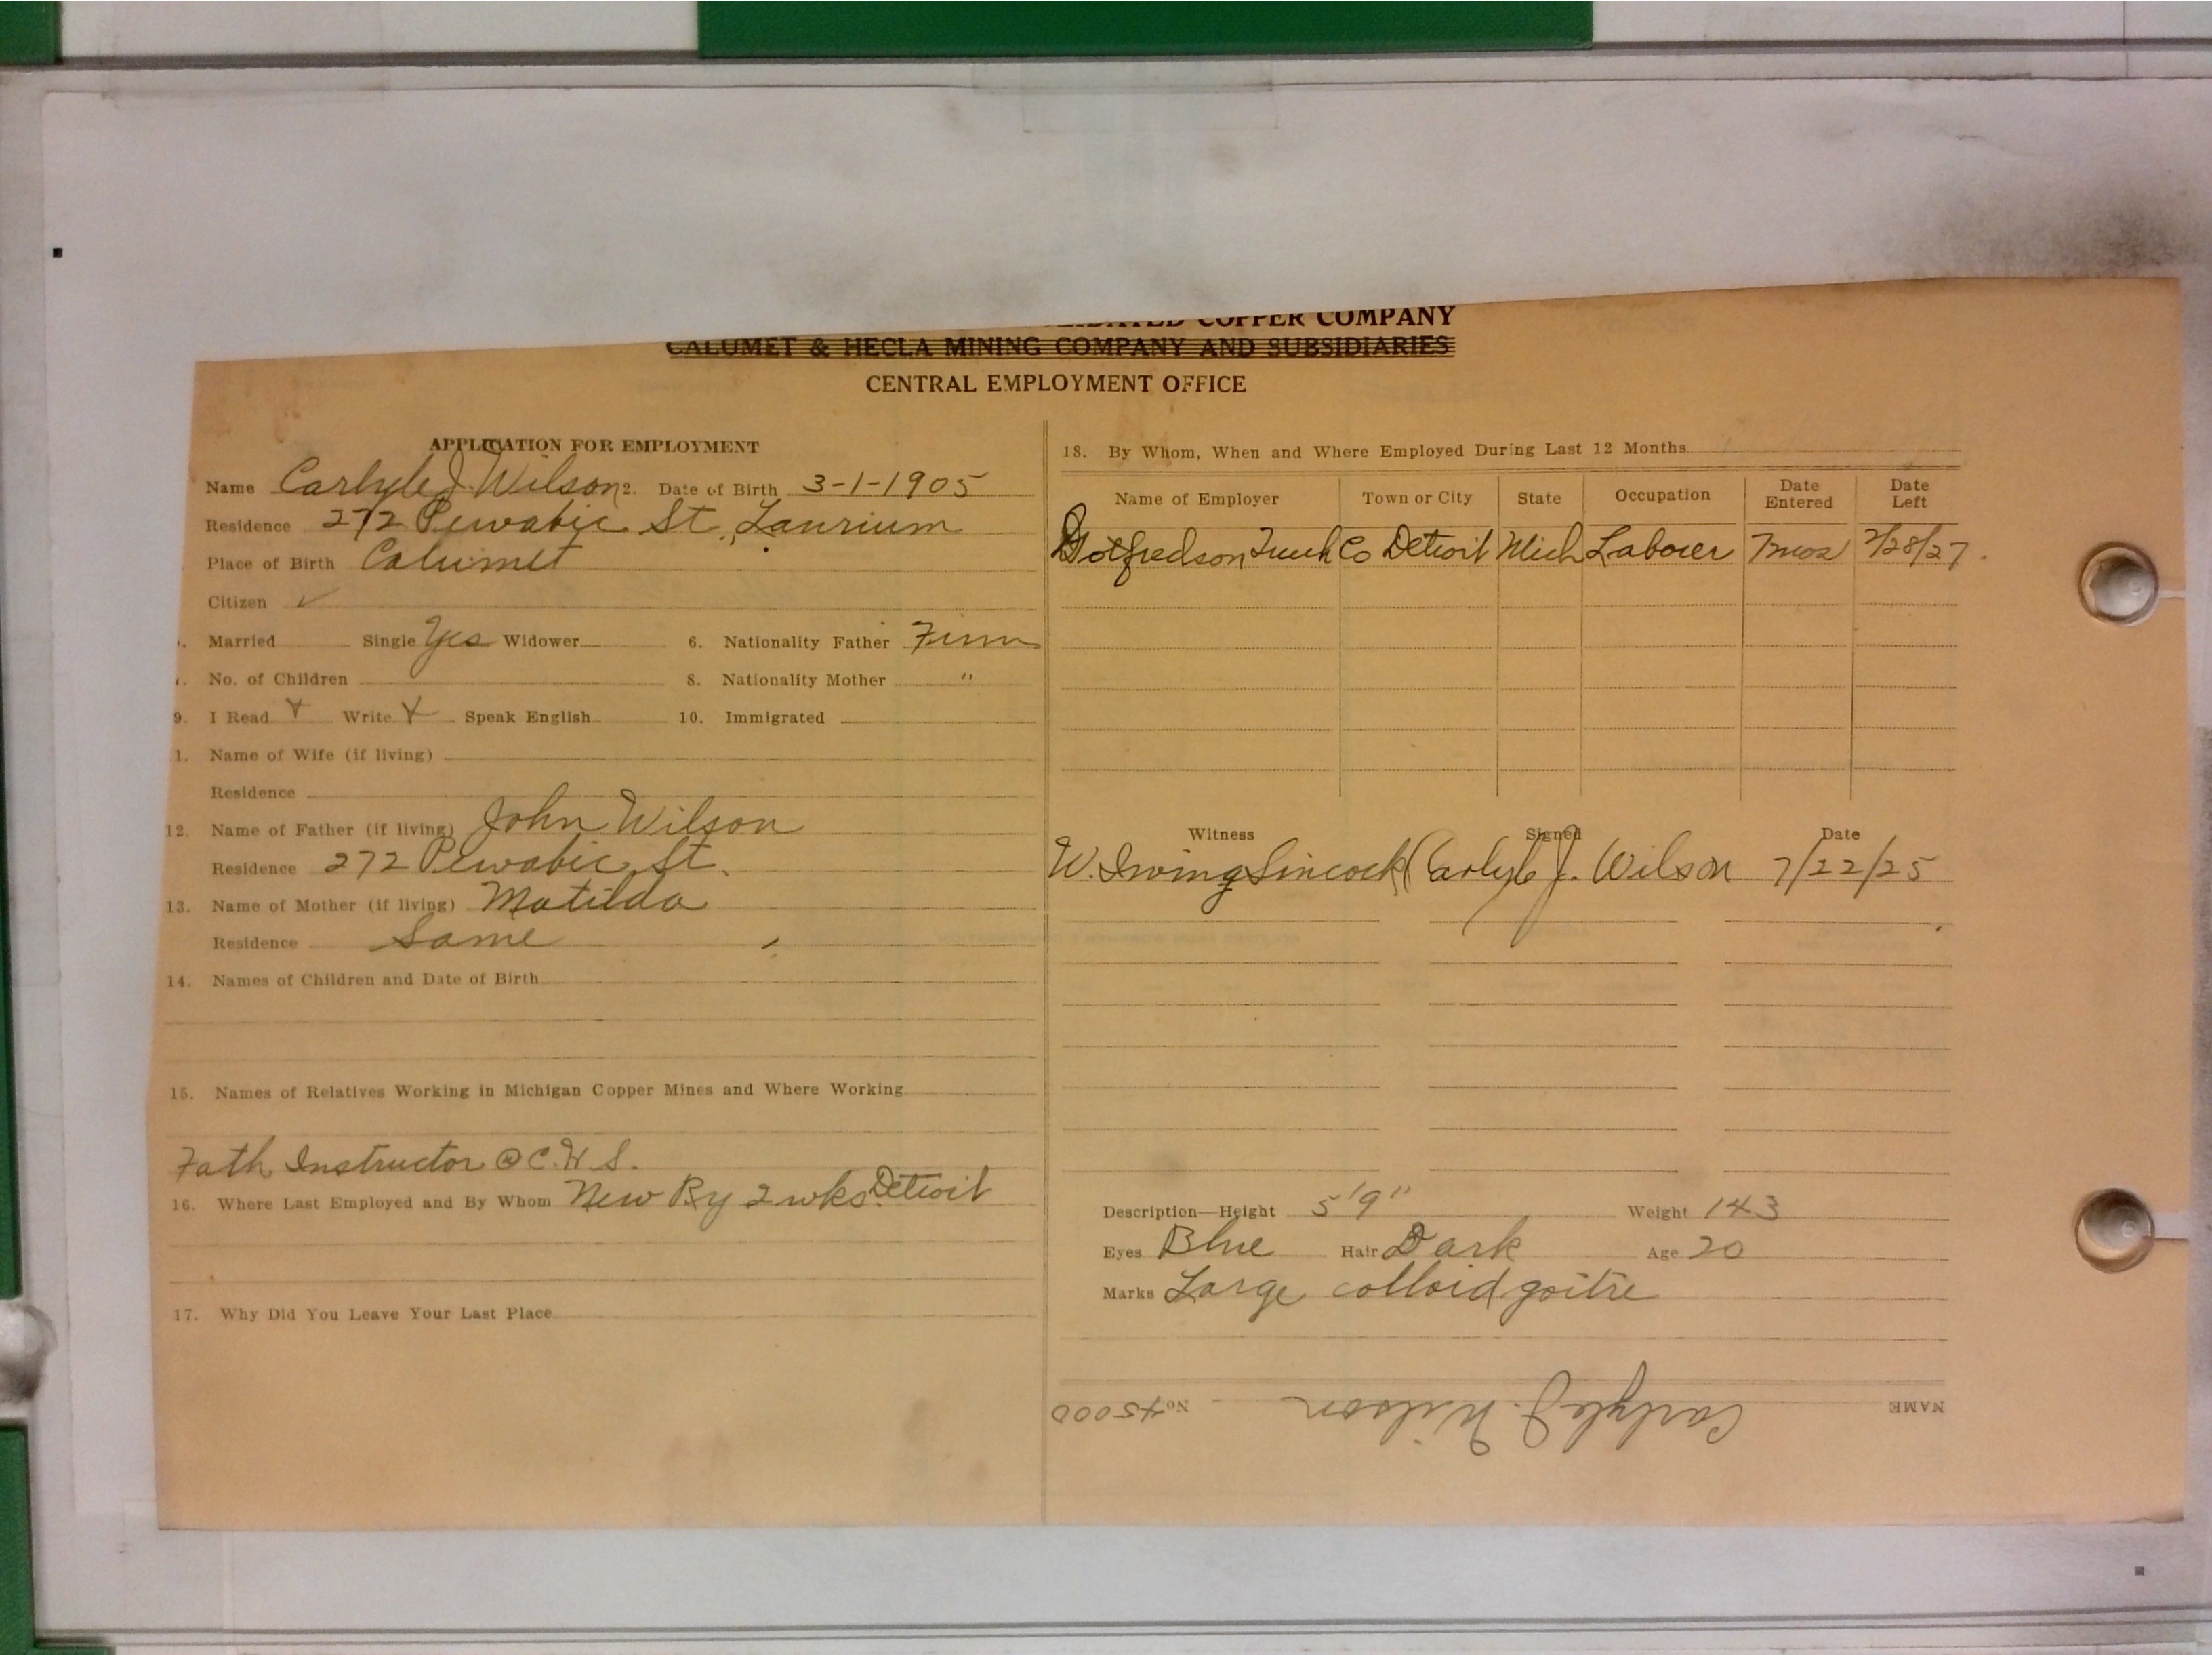 COPPER COMPANY
CALUMET & HECLA MINING COMPANY AND SUBSIDIARIES
CENTRAL EMPLOYMENT OFFICE
APPLICATION FOR EMPLOYMENT
Name Carlyle J. Wilson 2. Date of Birth 3-1-1905
Residence 272 Pewabic St., Laurium
Place of Birth Calumet
Citizen ✓
Married Single Yes Widower 6. Nationality Father Finn
No. of Children 8. Nationality Mother "
9. I Read Y Write Y Speak English 10. Immigrated
1. Name of Wife (if living)
Residence
12. Name of Father (if living) John Wilson
Residence 272 Pewabic St.
13. Name of Mother (if living) Matilda
Residence Same
14. Names of Children and Date of Birth
15. Names of Relatives Working in Michigan Copper Mines and Where Working
Fath Instructor @ C.H.S.
16. Where Last Employed and By Whom New Ry 2 wks. Detroit
17. Why Did You Leave Your Last Place
18. By Whom, When and Where Employed During Last 12 Months
Name of Employer Town or City State Occupation Date Entered Date Left
Gotfredson Truck Co Detroit Mich Laborer 7mos 7/28/27.
Witness Signed Date
W. Irving Sincock Carlyle J. Wilson 7/22/25
Description—Height 5'9" Weight 143
Eyes Blue Hair Dark Age 20
Marks Large colloid goitre
NAME Carlyle J. Wilson No. 45000